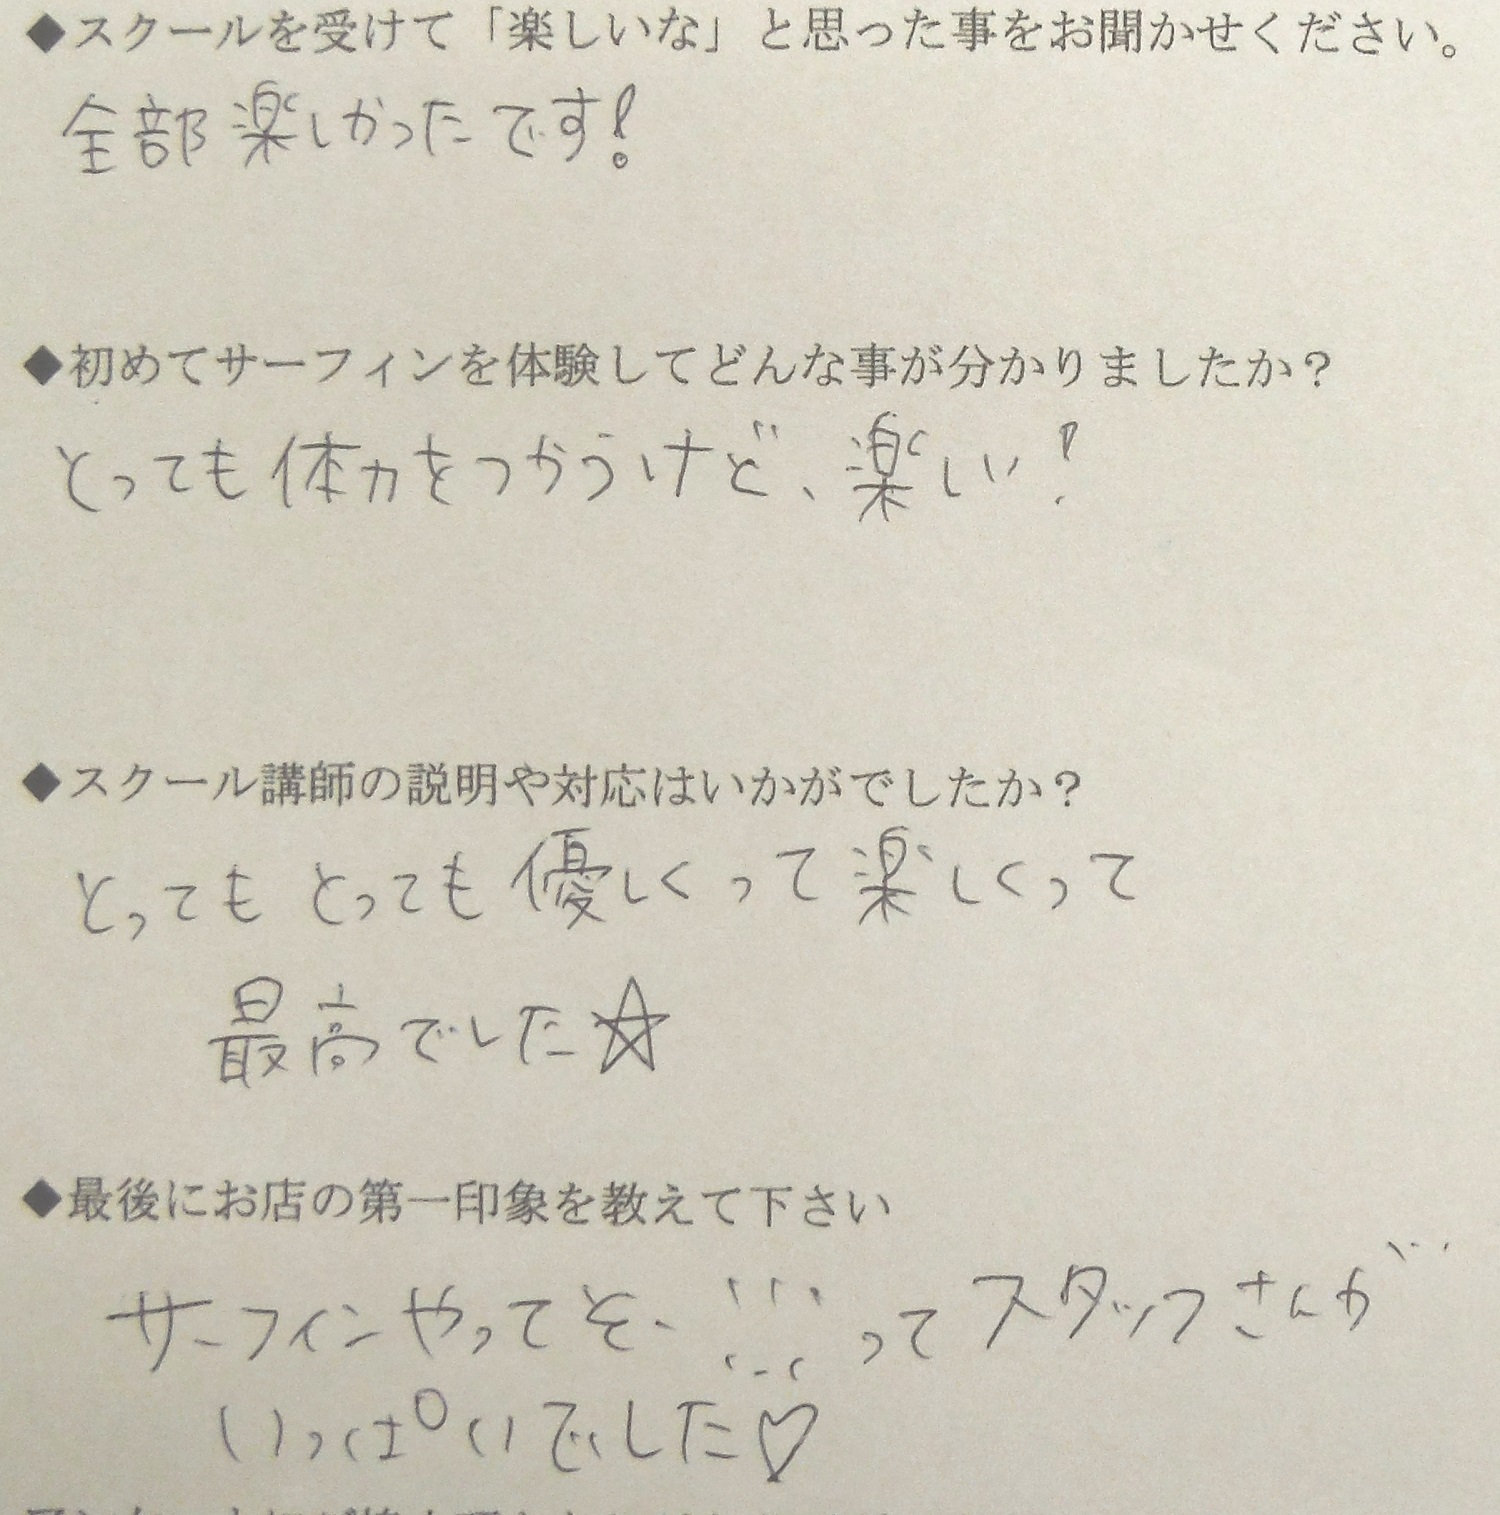 ◆スクールを受けて「楽しいな」と思った事をお聞かせください。
全部楽しかったです!
◆初めてサーフィンを体験してどんな事が分かりましたか？
とっても体力をつかうけど、楽しい!
◆スクール講師の説明や対応はいかがでしたか？
とってもとっても優しくって楽しくって
最高でした☆
◆最後にお店の第一印象を教えて下さい
サーフィンやってそーって スタッフさんが
いっぱいでした♡